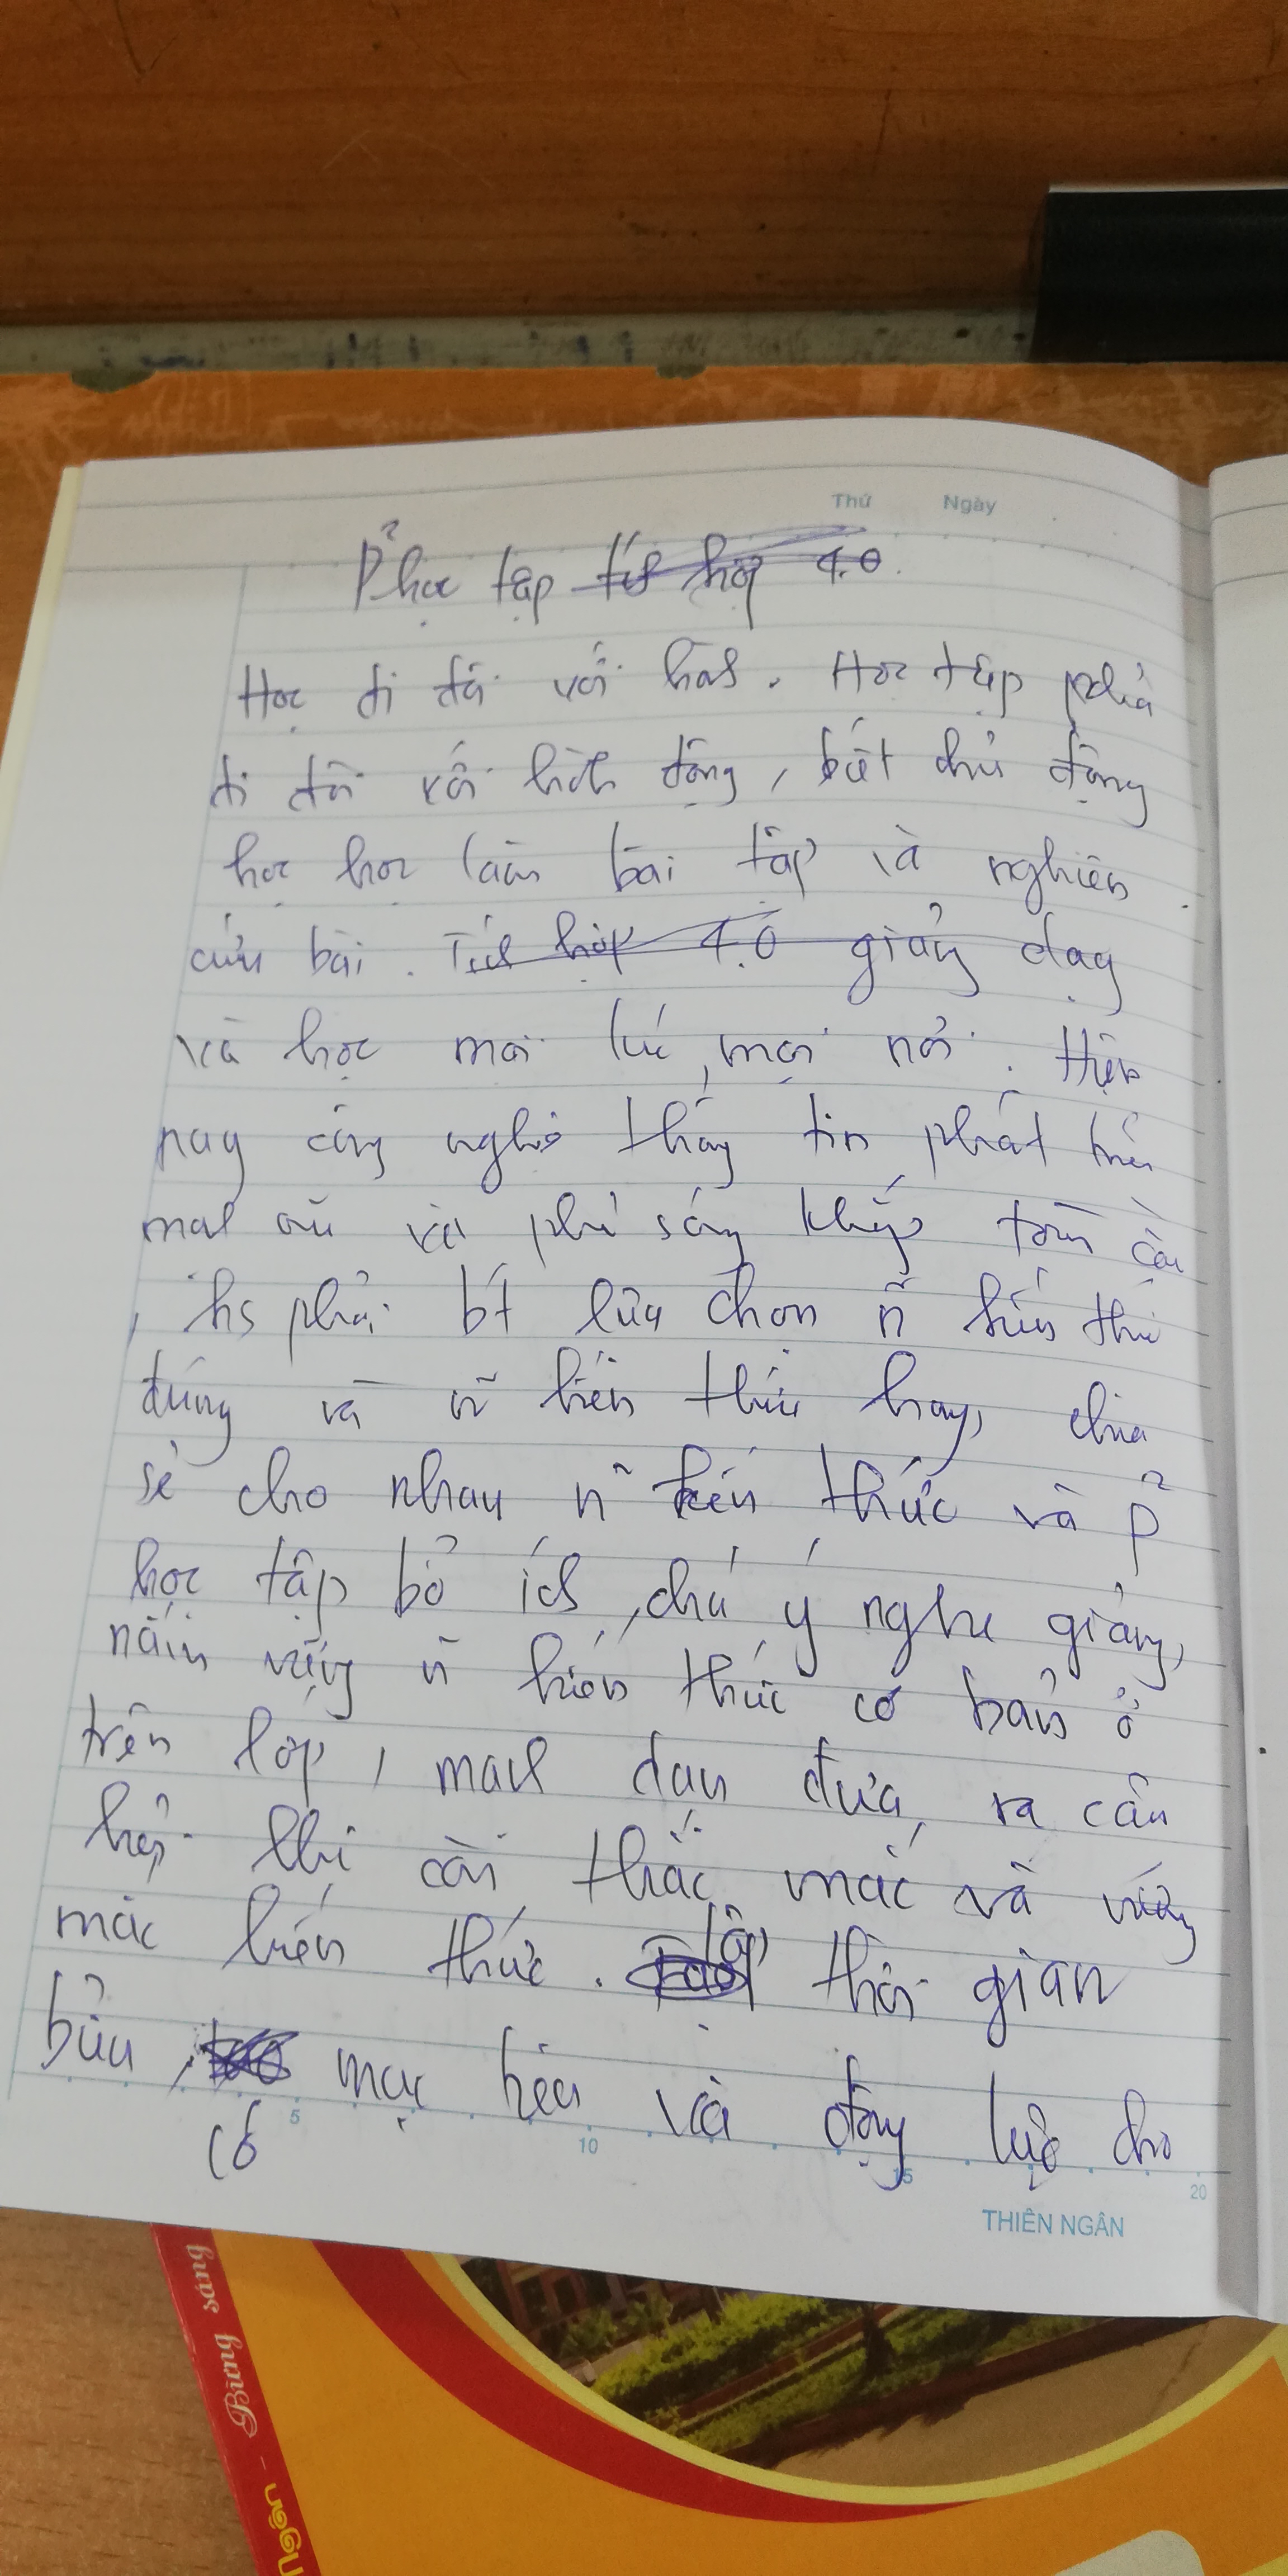 Thứ Ngày
P̉ học tập tích hợp 4.0.
Học đi đôi với hành. Học tập phải
đi đôi với hành động, biết chủ động
học học làm bài tập và nghiên
cứu bài. Tích hợp 4.0 giảng dạy
và học mọi lúc, mọi nơi. Hiện
nay công nghệ thông tin phát triển
mạnh và phủ sóng khắp toàn cầu
, hs phải bt lựa chọn n~ kiến thức
đúng và n~ kiến thức hay, chia
sẻ cho nhau n~ kiến thức và p̉
học tập bổ ích, chú ý nghe giảng,
nắm vững n~ kiến thức cơ bản ở
trên lớp, mạnh dạn đưa ra câu
hỏi khi còn thắc mắc và vướng
mắc kiến thức. lập thời gian
biểu, mục tiêu và động lực cho
có
5 10 15 20
THIÊN NGÂN
Ngân - Bừng sáng